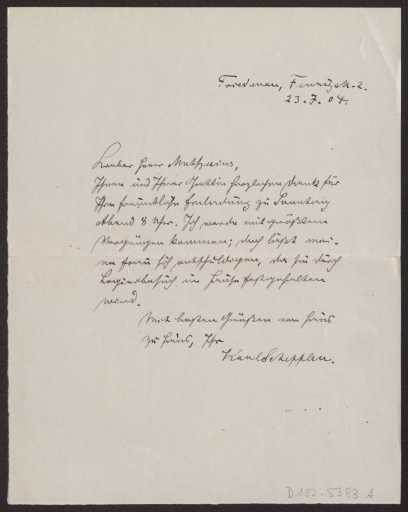 Friedenau, Fregestr. 2.
23. 7. 04.
Lieber Herr Matthaeus,
Ihnen und Ihrer Gattin herzlichen Dank für
Ihre freundliche Einladung zu Sonntag
abend 8 Uhr. Ich werde mit größtem
Vergnügen kommen; doch läßt mei-
ne Frau sich entschuldigen, da sie durch
Logierbesuch im Hause festgehalten
wird.
Mit besten Grüßen von Haus
zu Haus, Ihr
Karl Scheffler.
D182-5383 A